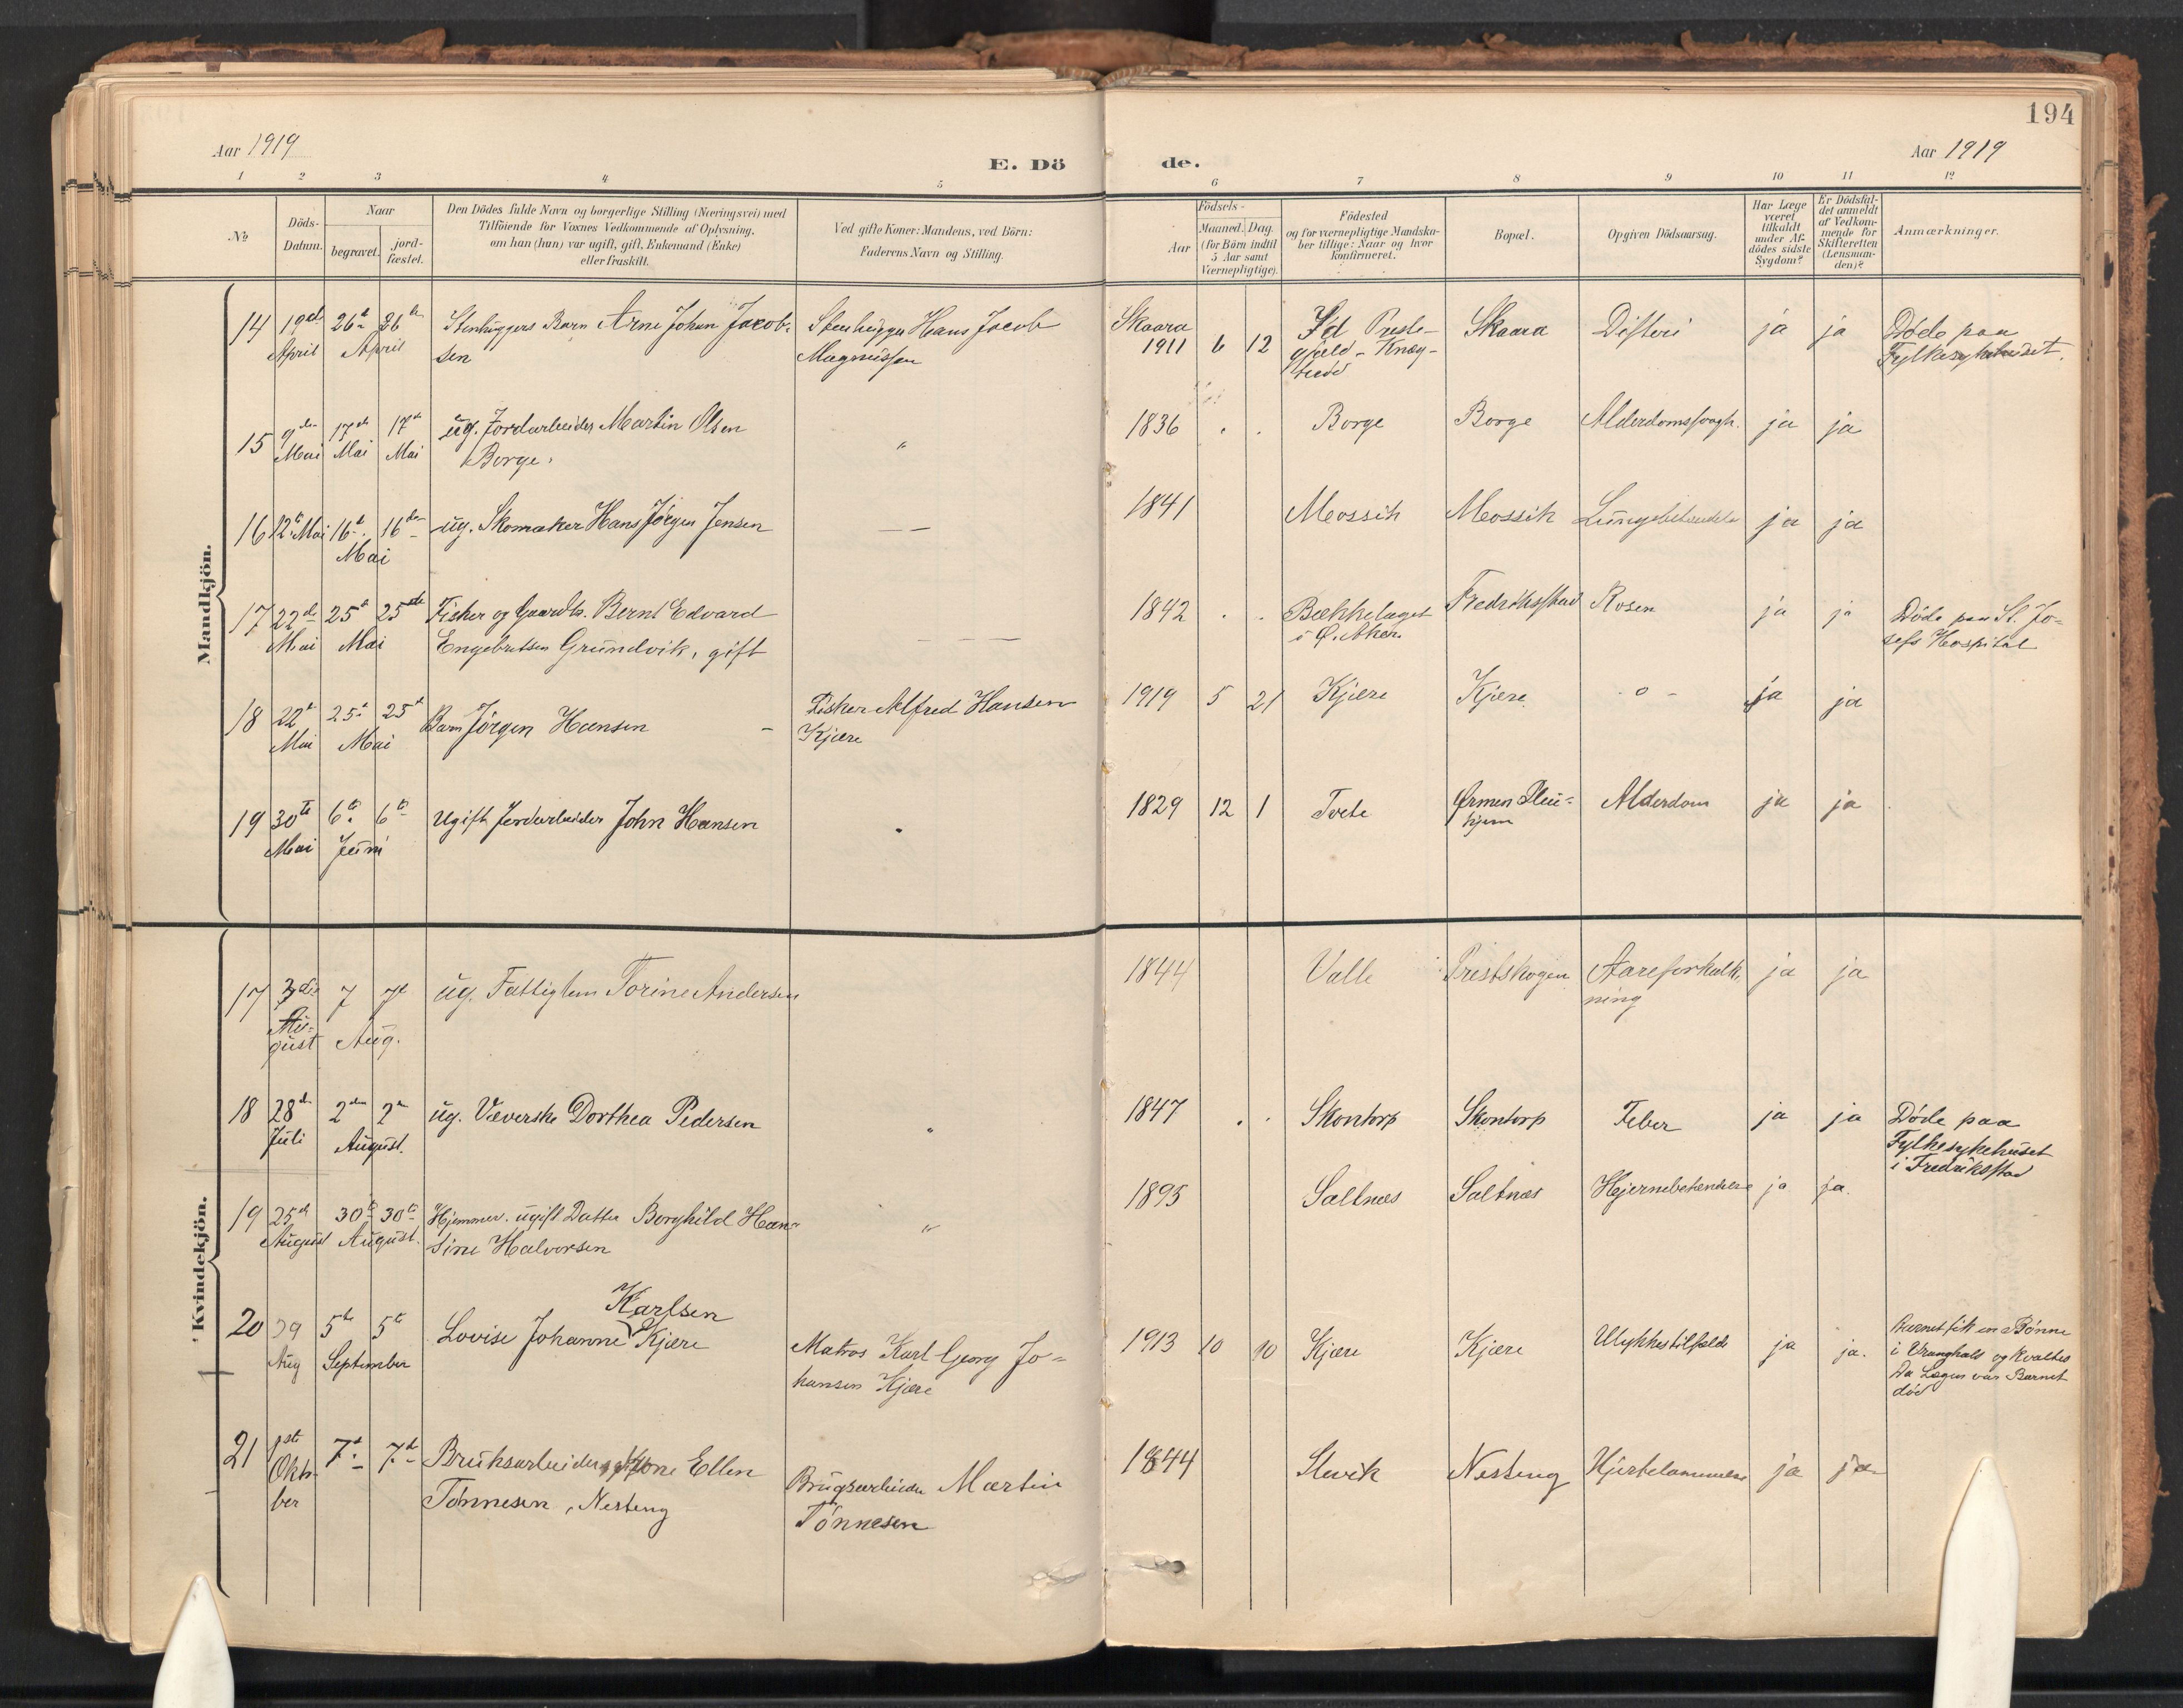 194
Aar 1919
E. Dö
de.
Aar 1919
1 2 3 4 5 6 7 8 9 10 11 12
No
Döds-
Datum.
Naar
begravet.
jord-
fæstet.
Den Dödes fulde Navn og borgerlige Stilling (Næringsvei) med
Tilföiende for Voxnes Vedkommende af Oplysning,
om han (hun) var ugift, gift, Enkemand (Enke)
eller fraskilt.
Ved gifte Koner: Mandens, ved Börn:
Faderens Navn og Stilling.
Födsels-
Aar
Maaned. Dag.
(for Börn indtil
5 Aar samt
Værnepligtige).
Födested
og for værnepligtige Mandska-
ber tillige: Naar og hvor
konfirmeret.
Bopæl.
Opgiven Dödsaarsag.
Har Læge
været
tilkaldt
under Af-
dödes sidste
Sygdom?
Er Dödsfal-
det anmeldt
af Vedkom-
mende for
Skifteretten
(Lensman-
den)?
Anmærkninger.
Mandkjön.
14 19de April 26de 26de April
Stenhuggers Barn Arne Johan Jacob-
sen
Stenhugger Hans Jacob
Magnussen
Skaara
1911 6 12
Id Preste-
gjeld -
Skaara Difteri ja ja
Døde paa
Fylkessykehuset.
15 9de Mai 17de Mai 17de Mai
ug. Jordarbeider Martin Olsen
Borge.
"
1836 Borge Borge ja ja
16 12te Mai 16de 16de Mai
ug. Skomaker Hans Jørgen Jensen
— —
1841 Mossik Mossik Lungebetændelse ja ja
17 22de Mai 25de 25de Mai
Fisker og Gaardb. Bernt Edvard
Engebretsen Grundvik, gift
— — —
1842 Bækkelaget
i Ø. Aker.
Fredriksstad Rosen ja ja
Døde paa St. Jo-
sefs Hospital
18 22de Mai 25de 25de Mai
Barn Jörgen Hansen -
Fisker Alfred Hansen
Kjære
1919 5 21 Kjære Kjære - o - ja ja
19 30te Mai 6te 6te Juni
Ugift Jordarbeider John Hansen
1829 12 1 Tvete
Ørmen Pleie-
hjem
Alderdom ja ja
Kvindekjön.
17 3die Au-
gust 7 7de Aug.
ug. Fattiglem Torine Andersen
1844 Valle Prestskogen
Aareforkalk-
ning
ja ja
18 28de Juli 2den 2den August.
ug. Væverske Dorthea Pedersen
"
1847 Skontorp Skontorp Feber ja ja
Døde paa
Fylkesykehuset
i Fredriksstad
19 25de August 30te 30te August.
Hjemmev. ugift Datter Borghild Han-
sine Halvorsen
"
1895 Saltnæs Saltnæs Hjernebetændelse ja ja.
20 29 Aug 5te 5te September
Karlsen
Lovise Johanne Kjære
Matros Karl Georg Jo-
hansen Kjære
1913 10 10 Kjære Kjære Ulykkestilfælde ja ja.
Barnet fik en Bønne
i Vranghals og kvaltes
Da Lægen var Barnet
død
21 1ste Okto-
ber 7de 7de
Bruksarbeiders Kone Ellen
Tønnesen, Nesteng
Brugsarbeider Martin
Tønnesen
1844 Slevik Nesteng Hjertelammelse ja ja